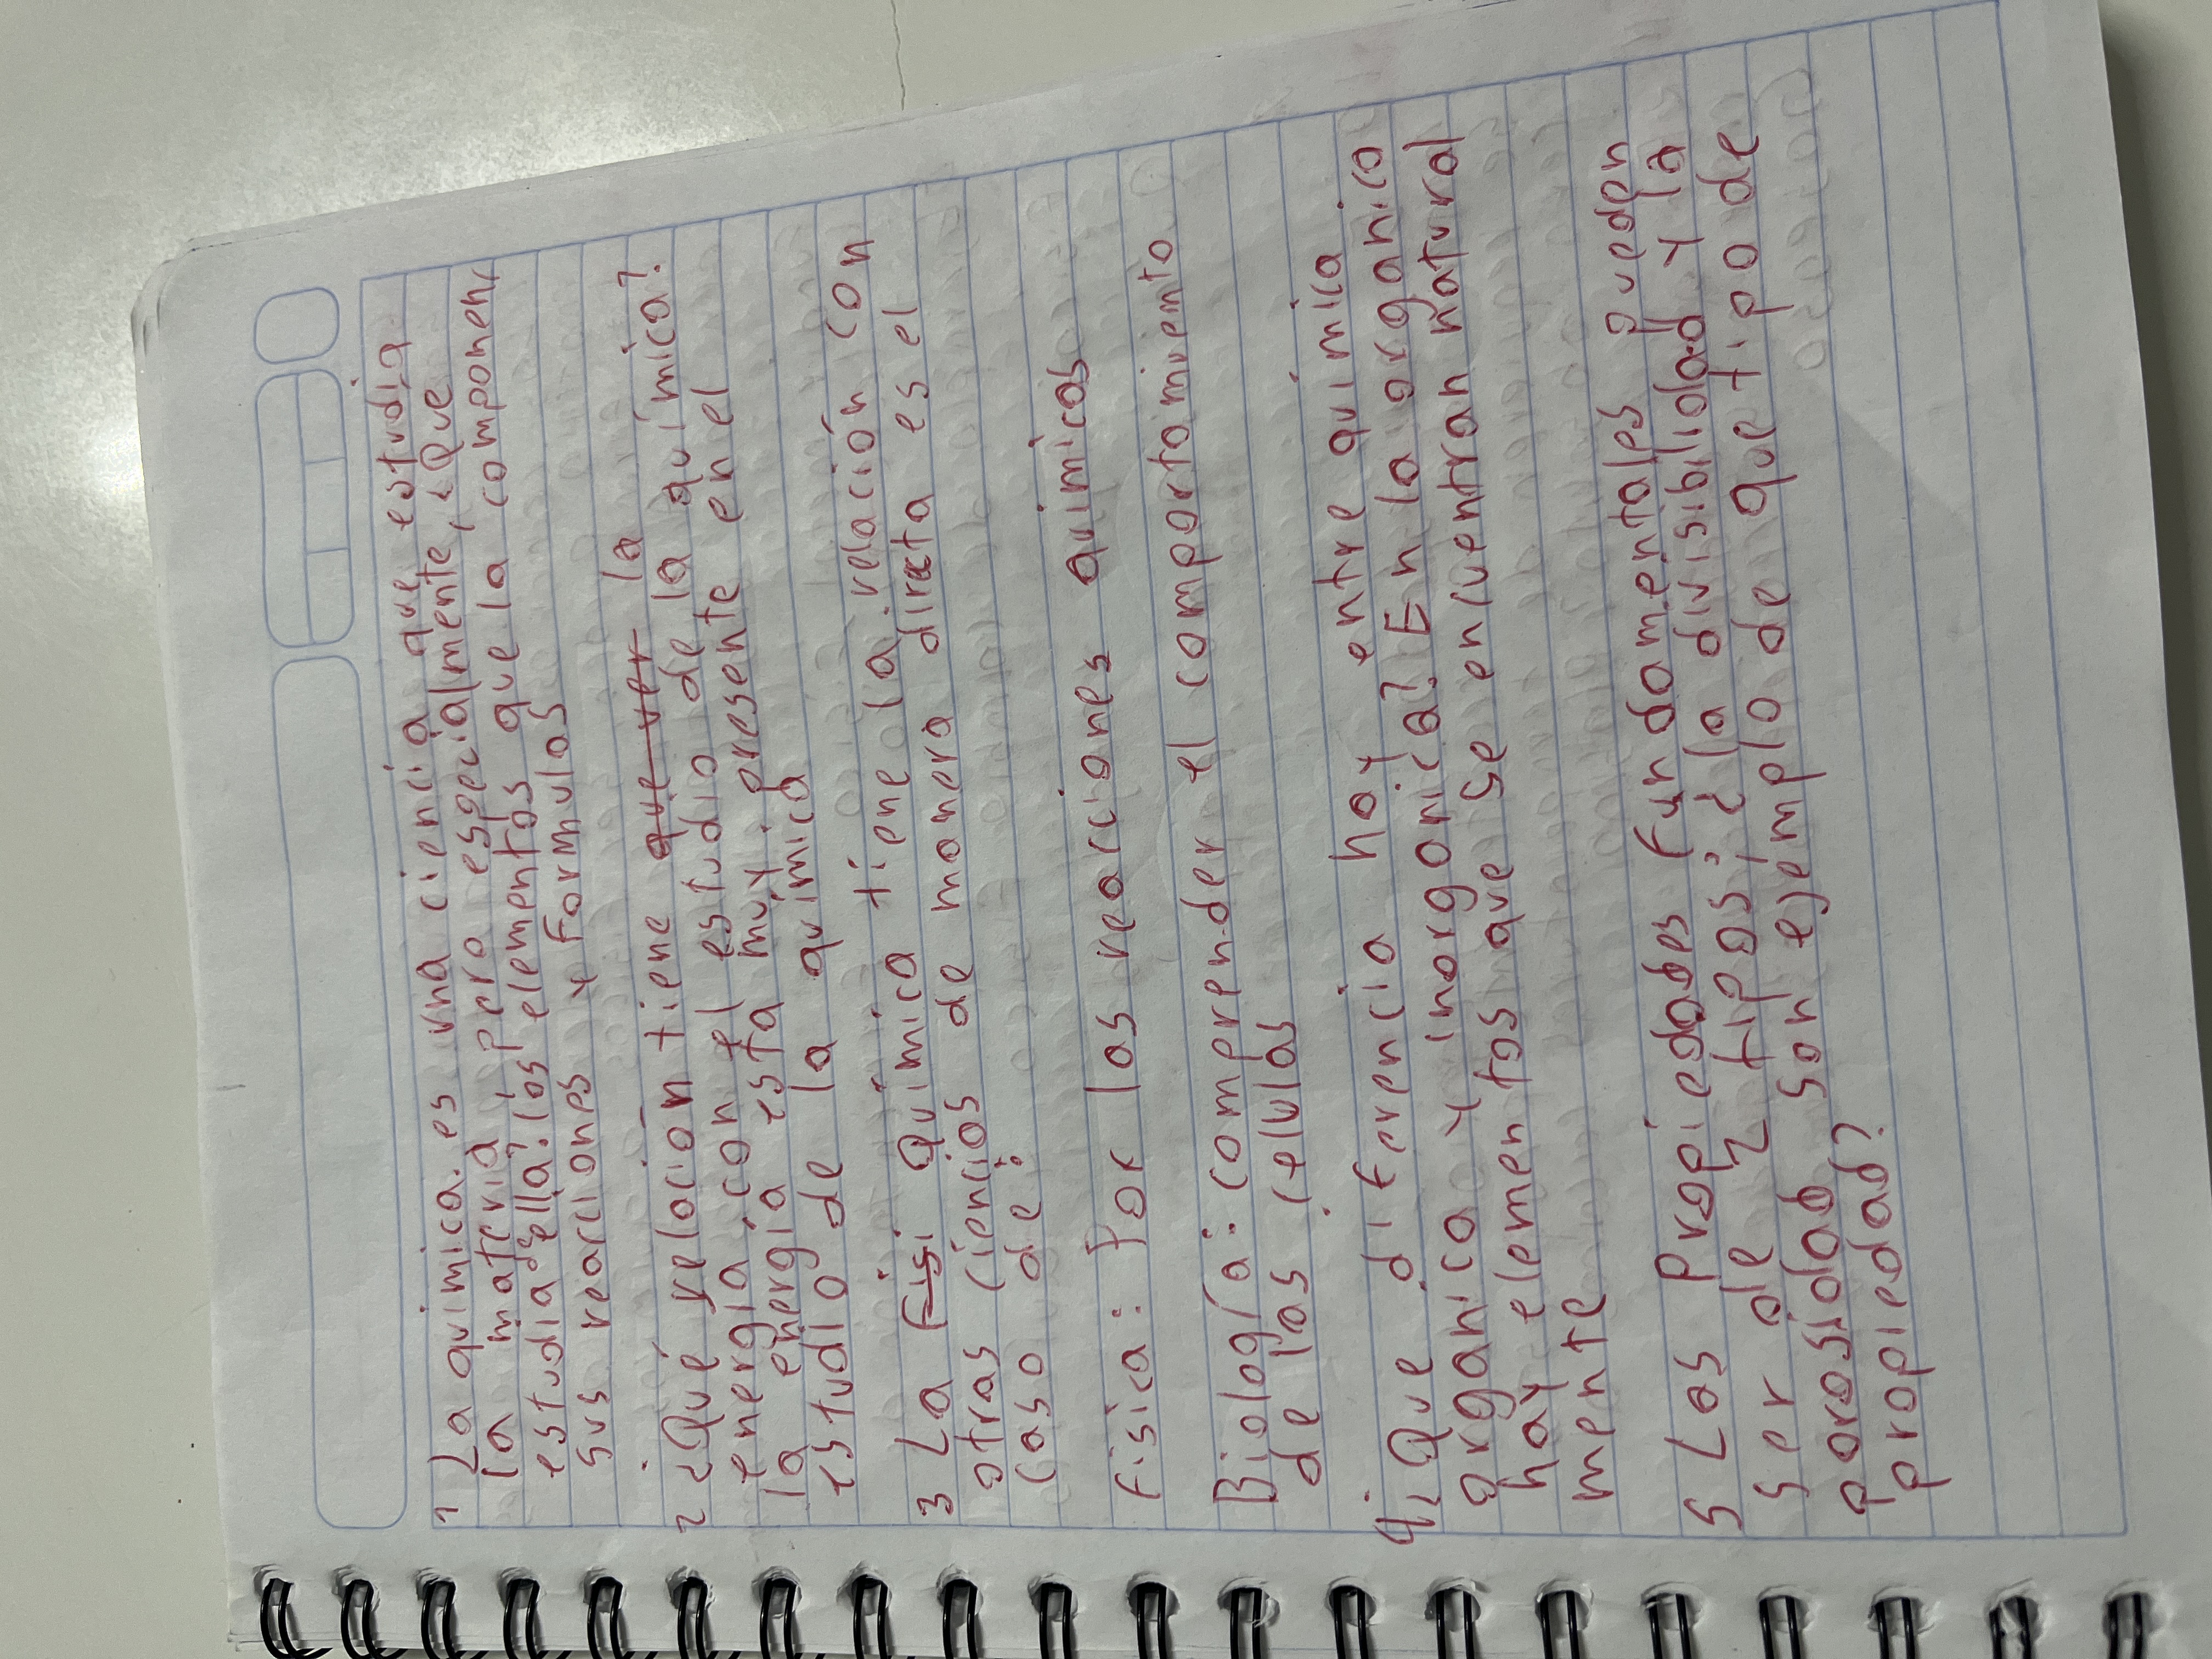 1 La quimica. es una ciencia que estudia
la materia, pero especialmente, ¿Que
estudia de ella? los elementos que la componen,
sus reacciones y Formulas
2 ¿Qué relación tiene que ver la
energía con el estudio de la química?
la energía está muy presente en el
estudio de la química
3 La Fisi Química tiene la relación con
otras ciencias de manera directa es el
caso de:
Fisica: Por las reacciones quimicas
Biología: comprender el comportamiento
de las celulas
4¿ Que diferencia hay entre quimica
organica y inorganica? En la organica
hay elementos que se encuentran natural
mente
5 Las Propiedades Fundamentales pueden
ser de 2 tipos; ¿la divisibilidad y la
porosidad son ejemplo de que tipo de
propiedad?